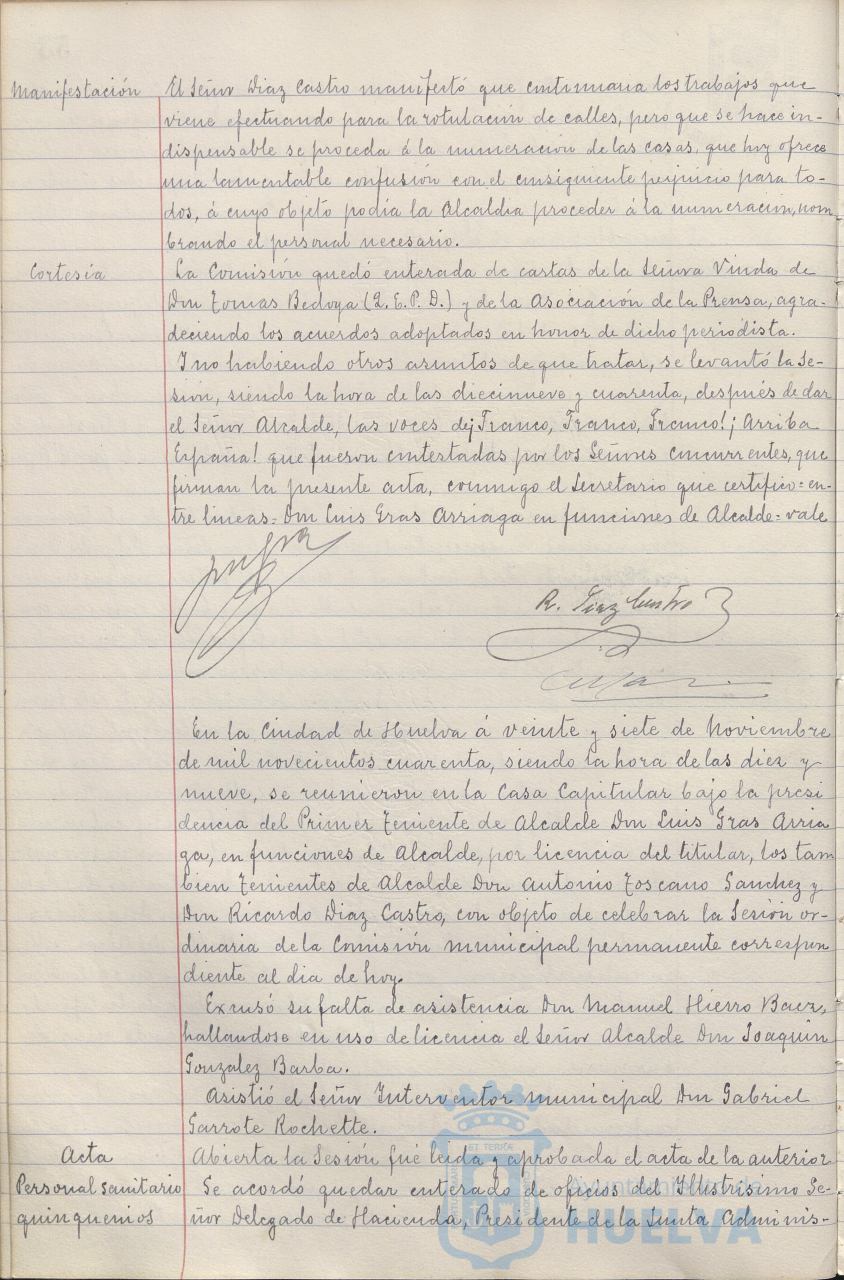 Manifestación
El Señor Diaz Castro manifestó que continuaria los trabajos que
viene efectuando para la rotulación de calles, pero que se hace in-
dispensable se proceda á la numeración de las casas, que hoy ofrece
una lamentable confusión con el consiguiente perjuicio para to-
dos, á cuyo objeto podia la Alcaldia proceder á la numeración, nom
brando el personal necesario.
Cortesía
La Comisión quedó enterada de cartas de la Señora Viuda de
Don Tomas Bedoya (Q. E. P. D.) y de la Asociación de la Prensa, agra-
deciendo los acuerdos adoptados en honor de dicho periodista.
Y no habiendo otros asuntos de que tratar, se levantó la Se-
sión, siendo la hora de las diecinueve y cuarenta, después de dar
el Señor Alcalde, las voces de ¡Franco, Franco, Franco! ¡Arriba
España! que fueron contestadas por los Señores concurrentes, que
firman la presente acta, conmigo el Secretario que certifico = en-
tre lineas = Don Luis Gras Arriaga en funciones de Alcalde = vale
R. Diaz Castro
En la Ciudad de Huelva á veinte y siete de Noviembre
de mil novecientos cuarenta, siendo la hora de las diez y
nueve, se reunieron en la Casa Capitular bajo la presi
dencia del Primer Teniente de Alcalde Don Luis Gras Arria
ga, en funciones de Alcalde, por licencia del titular, los tam
bien Tenientes de Alcalde Don Antonio Toscano Sanchez y
Don Ricardo Diaz Castro, con objeto de celebrar la Sesión or-
dinaria de la Comisión municipal permanente correspon
diente al dia de hoy.
Excusó su falta de asistencia Don Manuel Hierro Baez,
hallandose en uso de licencia el Señor Alcalde Don Joaquin
Gonzalez Barba.
Asistió el Señor Interventor municipal Don Gabriel
Garrote Rochette.
Acta
Abierta la Sesión fué leida y aprobada el acta de la anterior
Personal sanitario
quinquenios
Se acordó quedar enterado de oficios del Ilustrisimo Se-
ñor Delegado de Hacienda, Presidente de la Junta Adminis-
Ayuntamiento de
HUELVA